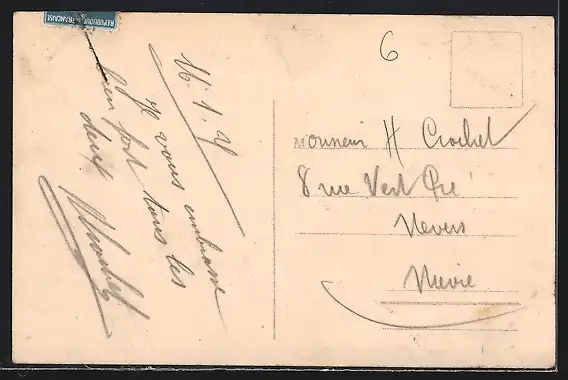 REPUBLIQUE FRANÇAISE
16.1.21
Je vous embrasse
bien fort tous les
deux
6
Monsieur H Crochet
8 rue Vert Pré
Nevers
Nièvre